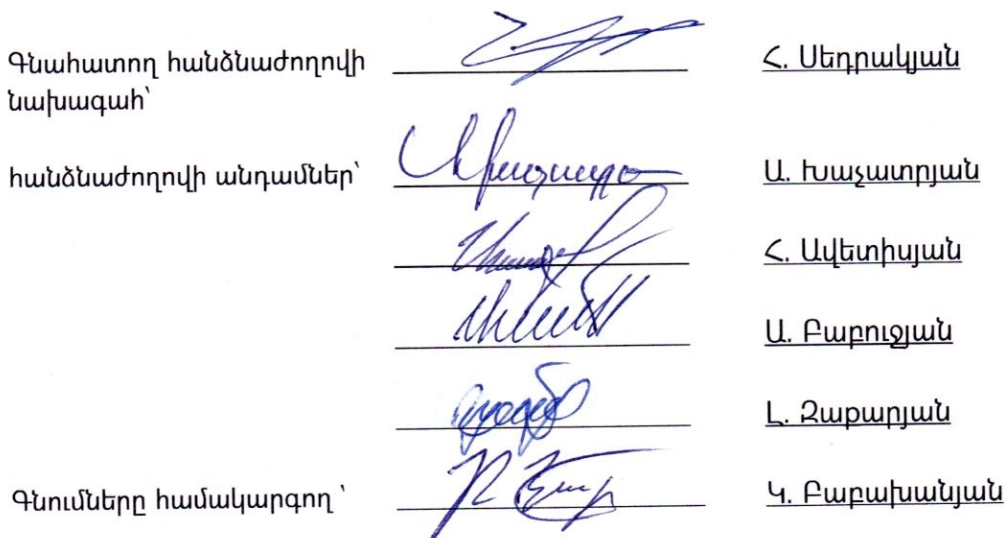 Գնահատող հանձնաժողովի Հ. Սեդրակյան
նախագահ՝
հանձնաժողովի անդամներ՝ Ա. Խաչատրյան
Հ. Ավետիսյան
Ա. Բաբուջյան
Լ. Զաքարյան
Գնումները համակարգող ՝ Կ. Բաբախանյան